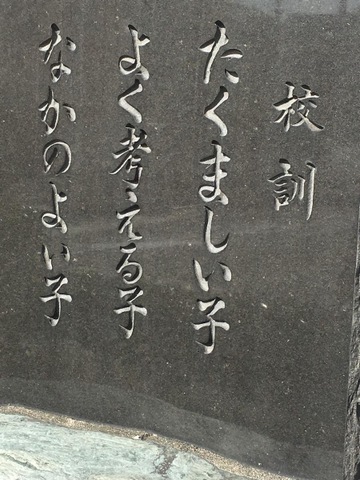 校訓
たくましい子
よく考える子
なかのよい子